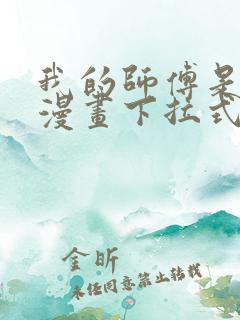 我的師傅是
漫畫下拉式
金昕
未经同意禁止转载